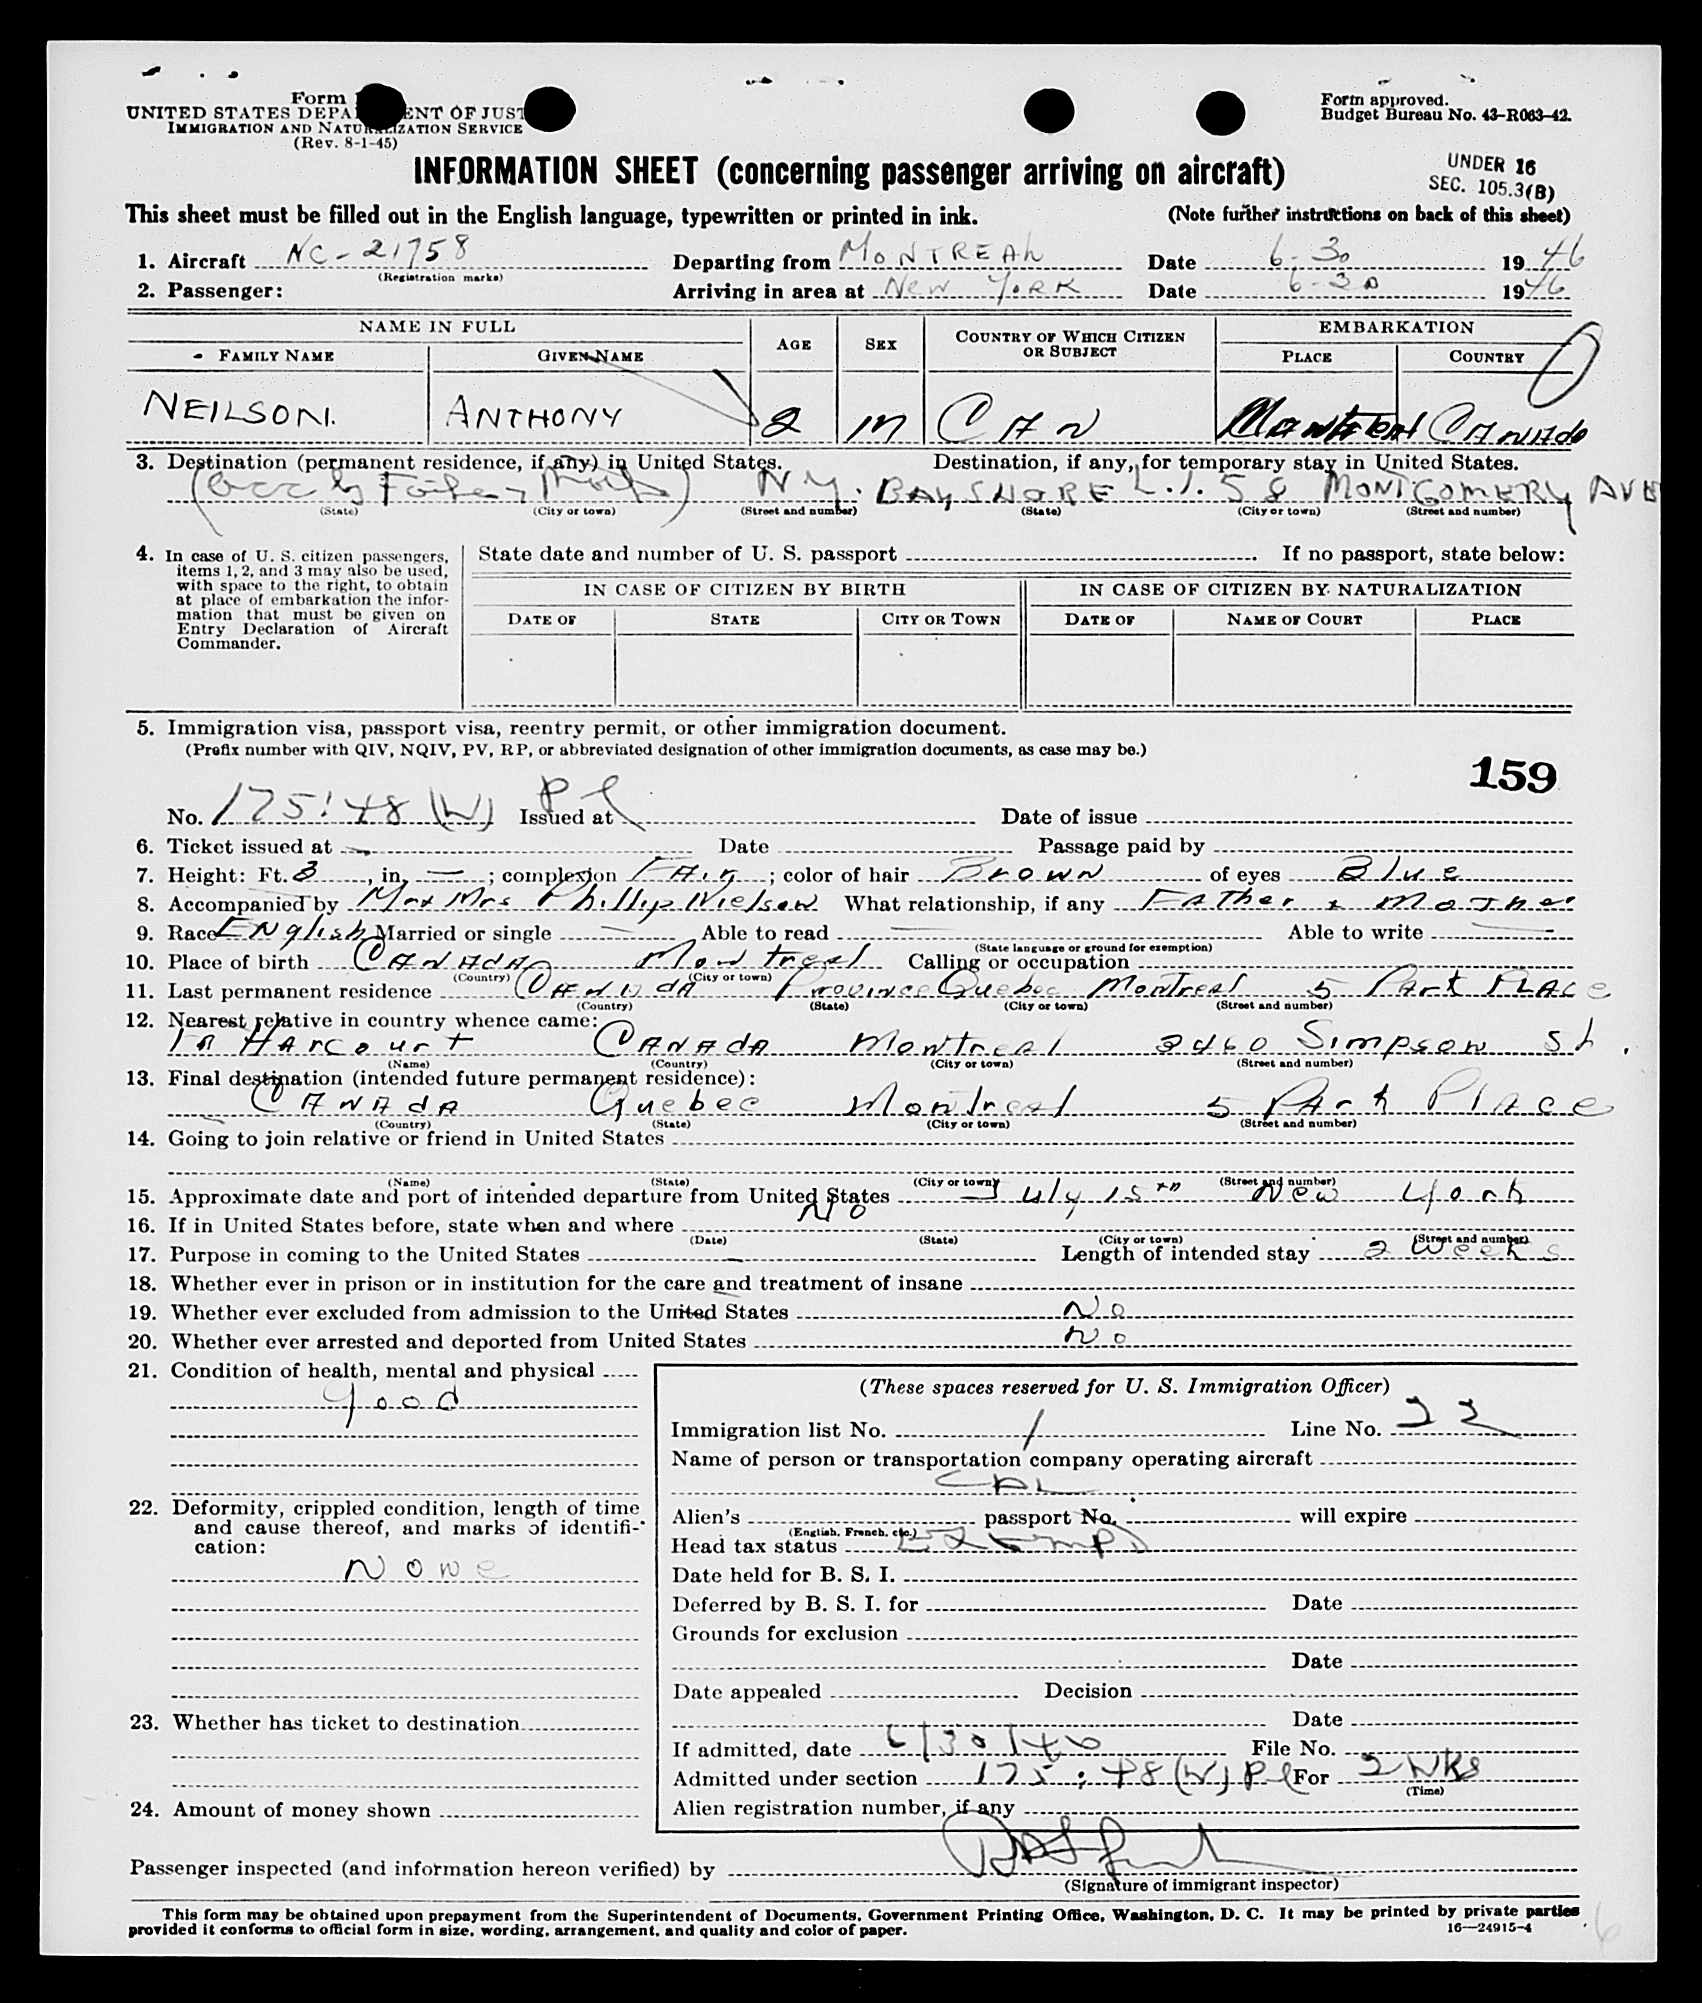 Form
UNITED STATES DEPA ENT OF JUST
IMMIGRATION AND NATURALIZATION SERVICE
(Rev. 8-1-45)
Form approved.
Budget Bureau No. 43-R063-42.
INFORMATION SHEET (concerning passenger arriving on aircraft)
UNDER 16
SEC. 105.3(B)
This sheet must be filled out in the English language, typewritten or printed in ink. (Note further instructions on back of this sheet)
1. Aircraft NC-21758 Departing from MONTREAL Date 6-30 1946
(Registration marks)
2. Passenger: Arriving in area at New York Date 6-30 1946
NAME IN FULL AGE SEX COUNTRY OF WHICH CITIZEN OR SUBJECT EMBARKATION
FAMILY NAME GIVEN NAME PLACE COUNTRY
NEILSON. ANTHONY 2 M CAN Montreal CANADA
3. Destination (permanent residence, if any) in United States. Destination, if any, for temporary stay in United States.
(Occ by Father & Mother) N.Y. BAYSHORE L.I. 58 MONTGOMERY AVE
(State) (City or town) (Street and number) (State) (City or town) (Street and number)
4. In case of U. S. citizen passengers, items 1, 2, and 3 may also be used, with space to the right, to obtain at place of embarkation the information that must be given on Entry Declaration of Aircraft Commander.
State date and number of U. S. passport If no passport, state below:
IN CASE OF CITIZEN BY BIRTH IN CASE OF CITIZEN BY NATURALIZATION
DATE OF STATE CITY OR TOWN DATE OF NAME OF COURT PLACE
5. Immigration visa, passport visa, reentry permit, or other immigration document.
(Prefix number with QIV, NQIV, PV, RP, or abbreviated designation of other immigration documents, as case may be.)
159
No. 175:48 (W) Pl Issued at Date of issue
6. Ticket issued at — Date Passage paid by
7. Height: Ft. 3, in. —; complexion FAir; color of hair Brown of eyes Blue
8. Accompanied by Mr & Mrs Phillip Nielson What relationship, if any Father & Mother
9. Race English Married or single — Able to read — Able to write —
(State language or ground for exemption)
10. Place of birth CANADA Montreal Calling or occupation
(Country) (City or town)
11. Last permanent residence CANADA Province Quebec Montreal 5 Park PLAce
(Country) (State) (City or town) (Street and number)
12. Nearest relative in country whence came:
HArcourt CANAdA Montreal 3460 Simpson St.
(Name) (Country) (City or town) (Street and number)
13. Final destination (intended future permanent residence):
CANAdA Quebec Montreal 5 PArk PlAce
(Country) (State) (City or town) (Street and number)
14. Going to join relative or friend in United States
(Name) (State) (City or town) (Street and number)
15. Approximate date and port of intended departure from United States July 15th New York
16. If in United States before, state when and where No
(Date) (State) (City or town) (Street and number)
17. Purpose in coming to the United States — Length of intended stay 2 weeks
18. Whether ever in prison or in institution for the care and treatment of insane
19. Whether ever excluded from admission to the United States No
20. Whether ever arrested and deported from United States No
21. Condition of health, mental and physical
good
22. Deformity, crippled condition, length of time and cause thereof, and marks of identification:
None
23. Whether has ticket to destination
24. Amount of money shown
(These spaces reserved for U. S. Immigration Officer)
Immigration list No. 1 Line No. 22
Name of person or transportation company operating aircraft
Alien's passport No. will expire
(English, French, etc.)
Head tax status Exempt
Date held for B. S. I.
Deferred by B. S. I. for Date
Grounds for exclusion
Date
Date appealed Decision
Date
If admitted, date 6/30/46 File No.
Admitted under section 175:48 (W) Pl For 2 WKS
(Time)
Alien registration number, if any
Passenger inspected (and information hereon verified) by
(Signature of immigrant inspector)
This form may be obtained upon prepayment from the Superintendent of Documents, Government Printing Office, Washington, D. C. It may be printed by private parties
provided it conforms to official form in size, wording, arrangement, and quality and color of paper. 16—24915-4